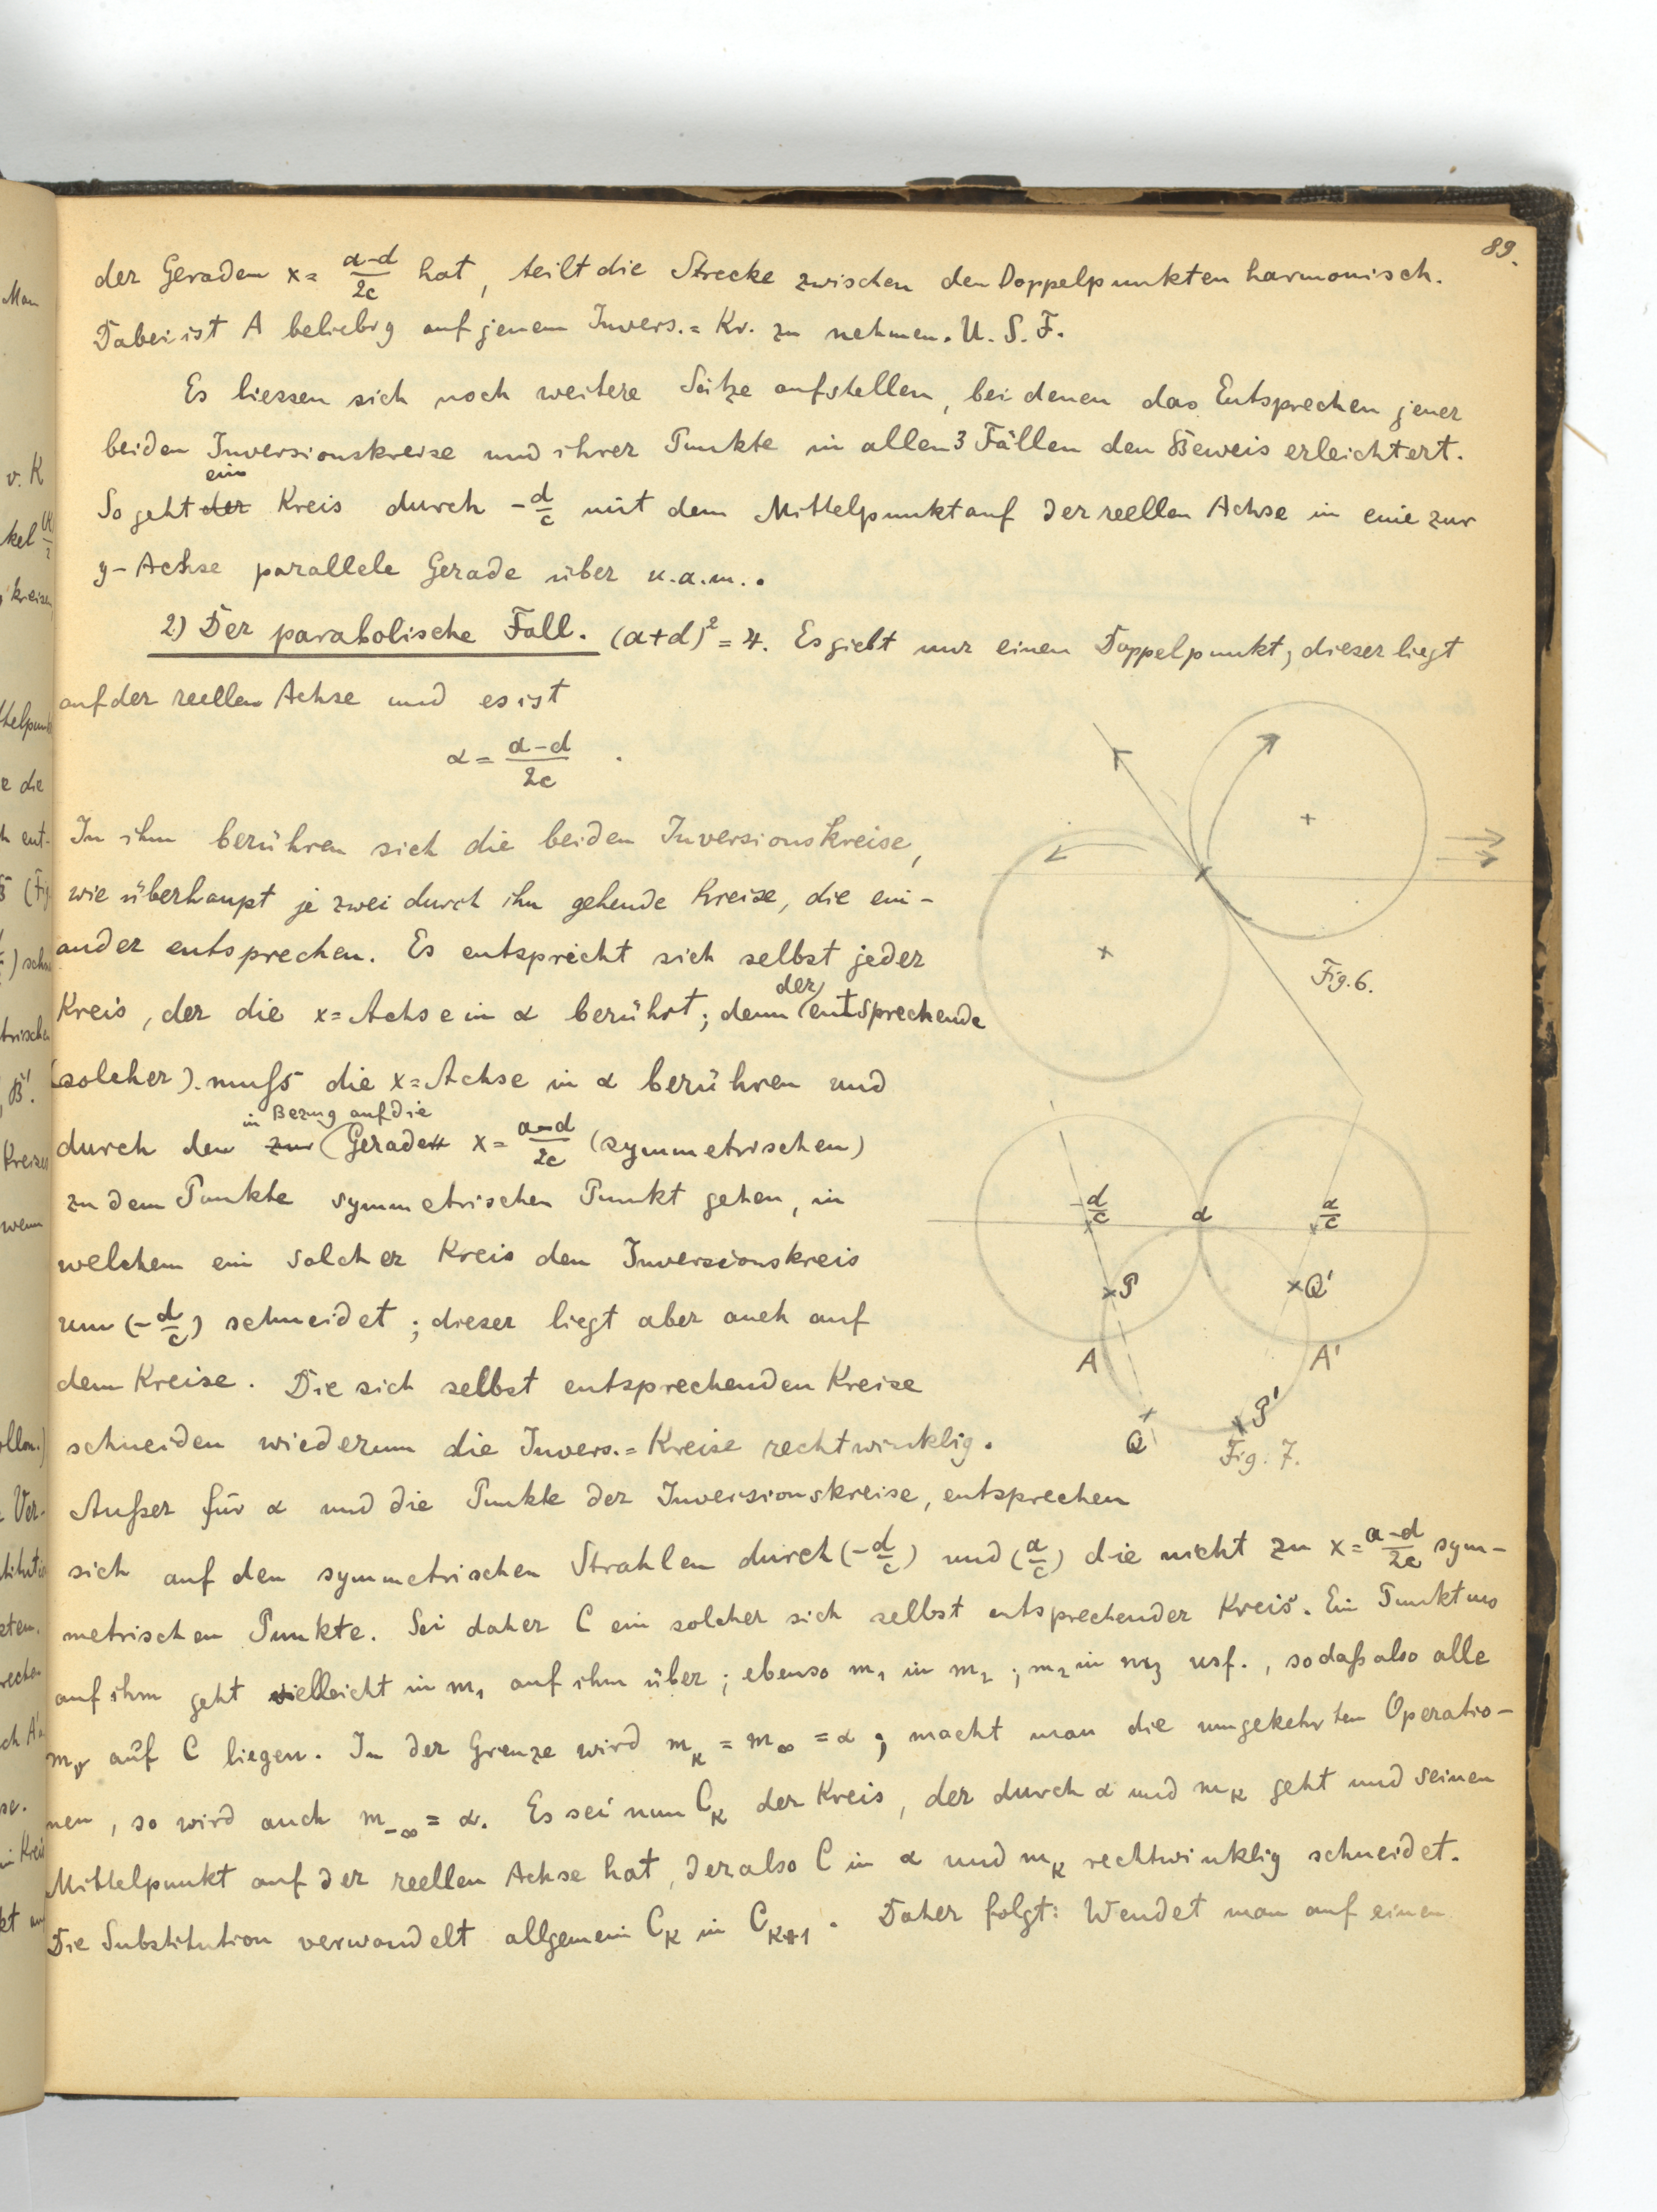 89.
der Geraden x = (a-d)/2c hat, teilt die Strecke zwischen den Doppelpunkten harmonisch.
Dabei ist A beliebig auf jenem Invers.= Kr. zu nehmen. U. S. F.
Es liessen sich noch weitere Sätze aufstellen, bei denen das Entsprechen jener
beiden Inversionskreise und ihrer Punkte in allen 3 Fällen den Beweis erleichtert.
So geht der ein Kreis durch -d/c mit dem Mittelpunkt auf der reellen Achse in eine zur
y-Achse parallele Gerade über u.a.m..
2) Der parabolische Fall. (a+d)² = 4. Es giebt nur einen Doppelpunkt, dieser liegt
auf der reellen Achse und es ist
α = (a-d)/2c .
In ihm berühren sich die beiden Inversionskreise,
wie überhaupt je zwei durch ihn gehende Kreise, die ein-
ander entsprechen. Es entspricht sich selbst jeder
Kreis, der die x=Achse in α berührt; denn der entsprechende
(solcher). muß die x=Achse in α berühren und
durch den zur in Bezug auf die (Geraden x = (a-d)/2c (symmetrischen)
zu dem Punkte symmetrischen Punkt gehen, in
welchem ein solcher Kreis den Inversionskreis
um (-d/c) schneidet; dieser liegt aber auch auf
dem Kreise. Die sich selbst entsprechenden Kreise
schneiden wiederum die Invers.=Kreise rechtwinklig.
Außer für α und die Punkte der Inversionskreise, entsprechen
sich auf den symmetrischen Strahlen durch (-d/c) und (a/c) die nicht zu x = (a-d)/2c sym-
metrischen Punkte. Sei daher C ein solcher sich selbst entsprechender Kreis. Ein Punkt m₀
auf ihm geht vielleicht in m₁ auf ihm über; ebenso m₁ in m₂; m₂ in m₃ usf., sodaß also alle
mᵥ auf C liegen. In der Grenze wird m_κ = m_∞ = α; macht man die umgekehrten Operatio-
nen, so wird auch m_-∞ = α. Es sei nun C_K der Kreis, der durch α und m_K geht und seinen
Mittelpunkt auf der reellen Achse hat, der also C in α und m_K rechtwinklig schneidet.
Die Substitution verwandelt allgemein C_K in C_K+1. Daher folgt: Wendet man auf einen
Fig. 6.
-d/c α a/c
P Q'
A A'
Q P'
Fig. 7.